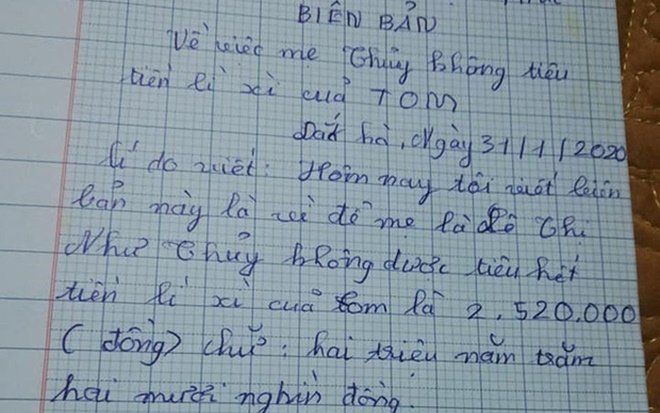 BIÊN BẢN
Về việc mẹ Thủy không tiêu
tiền lì xì của TOM
Đăk hà, Ngày 31/1/2020
Lí do viết: Hôm nay tôi viết biên
bản này là vì để mẹ là Lê Thị
Như Thủy không được tiêu hết
tiền lì xì của tom là 2.520.000
(đồng) chữ: hai triệu năm trăm
hai mươi nghìn đồng.